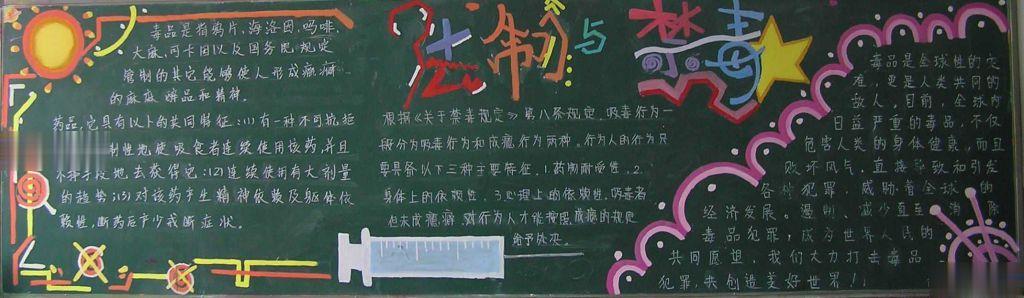 法制与禁毒
毒品是指鸦片、海洛因、吗啡、
大麻、可卡因以及国务院规定
管制的其它能够使人形成瘾癖
的麻麻醉品和精神。
药品,它具有以下的共同特征:(1)有一种不可抗拒
制性地使吸食者连续使用该药,并且
不择手段地去获得它;(2)连续使用有大剂量
的趋势;(3)对该药产生精神依赖及躯体依
赖性,断药后产生戒断症状。
根据《关于禁毒规定》第八条规定,吸毒行为一
般分为吸毒行为和成瘾行为两种。行为人的行为只
要具备以下三种主要特征,1.药物耐受性,2.
身体上的依赖性,3.心理上的依赖性,吸毒者
但未成瘾癖,对行为人才能按照成瘾的规定
给予处罚。
毒品是全球性的灾
难,更是人类共同的
敌人。目前,全球内
日益严重的毒品,不仅
危害人类的身体健康,而且
败坏风气,直接导致和引发
各种犯罪,威胁着全球的
经济发展。遏制、减少直至消除
毒品犯罪,成为世界人民的
共同愿望,我们大力打击毒品
犯罪,共创造美好世界!